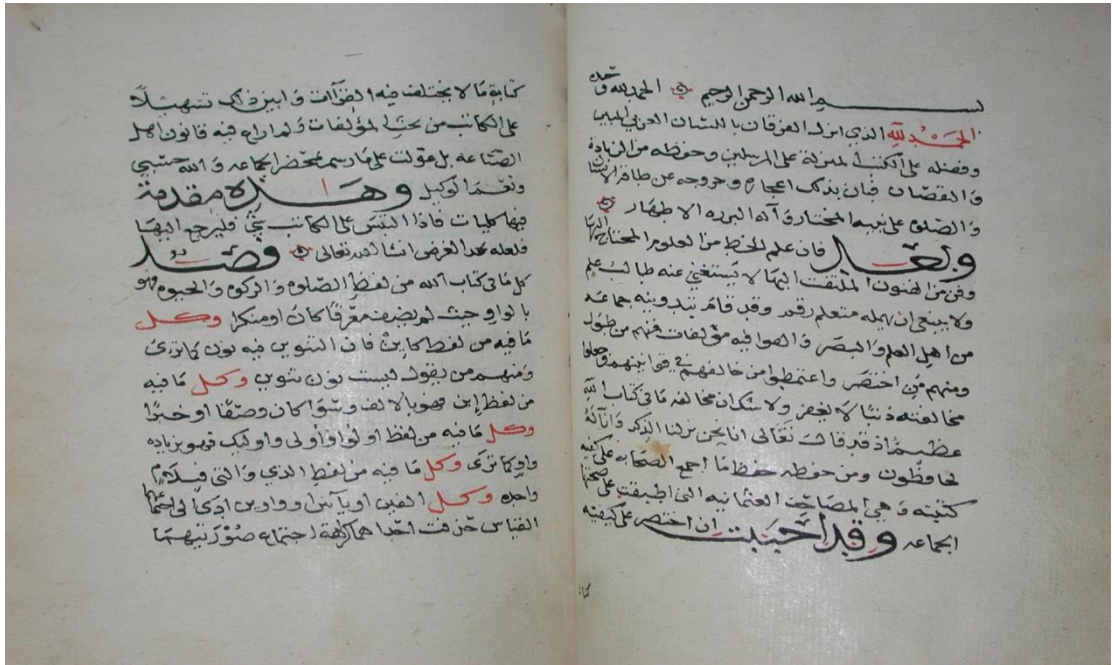 بسم الله الرحمن الرحيم الحمد لله وحده
الحمد لله الذي انزل الفرقان باللسان العربي المبين
وفضله على الكتب المنزلة على المرسلين وحفظه من الزيادة
والنقصان فبان بذلك اعجازه وخروجه عن طاقة الانسان
والصلوه على نبيه المختار وآله البرره الاطهار
وبعد فان علم الخط من العلوم المحتاج اليها
وفن من الفنون الملتفت اليها لا يستغني عنه طالب علم
ولا ينبغي ان يهمله متعلم رقم وقد قام بتدوينه جماعة
من اهل العلم والبصر والفوا فيه مؤلفات فمنهم من طول
ومنهم من اختصر واعتمطوا من خالفهم في قوانينهم وجعلوا
مخالفته ذنبا لا يغفر ولا شك ان مخالفة ما في كتاب الله
عظيم اذ قد قال تعالى انا نحن نزلنا الذكر وانا له
لحافظون ومن حفظه حفظ ما اجمع الصحابه على كتبه
كتبته وهي المصاحف العثمانيه التي اطبقت على صحتها
الجماعه وقد احببت ان اختصر على كيفية
كتابة
كتابة ما لا يختلف فيه القرآات وابين ذلك تسهيلا
على الكاتب من بحث المؤلفات ولم اراع فيه قانون اهل
الصناعه بل عولت على ما رسم بمحضر الجماعه والله حسبي
ونعم الوكيل وهذه مقدمة
فيها كليات فاذا التبس على الكاتب شي فليرجع اليها
فلعله يجد الغرض ان شا الله تعالى فصل
كل ما في كتاب الله من لفظ الصلوه والزكوه والحيوه فهو
بالواو حيث لم يضف معرفا كان او منكرا وكل
ما فيه من لفظ كاين فان التنوين فيه نون كما ترى
ومنهم من يقول ليست نون تنوين وكل ما فيه
من لفظ إبن فهو بالالف وسوا كان وصفا او خبرا
وكل ما فيه من لفظ اولوا واولى واوليك فهو بزياده
واو كما ترى وكل ما فيه من لفظ الذي والتي فبلام
واحده وكل الفين او يآئين او واوين ادى الى اجتماعهما
القياس حذفت احداهما كراهة اجتماع صورتيهما